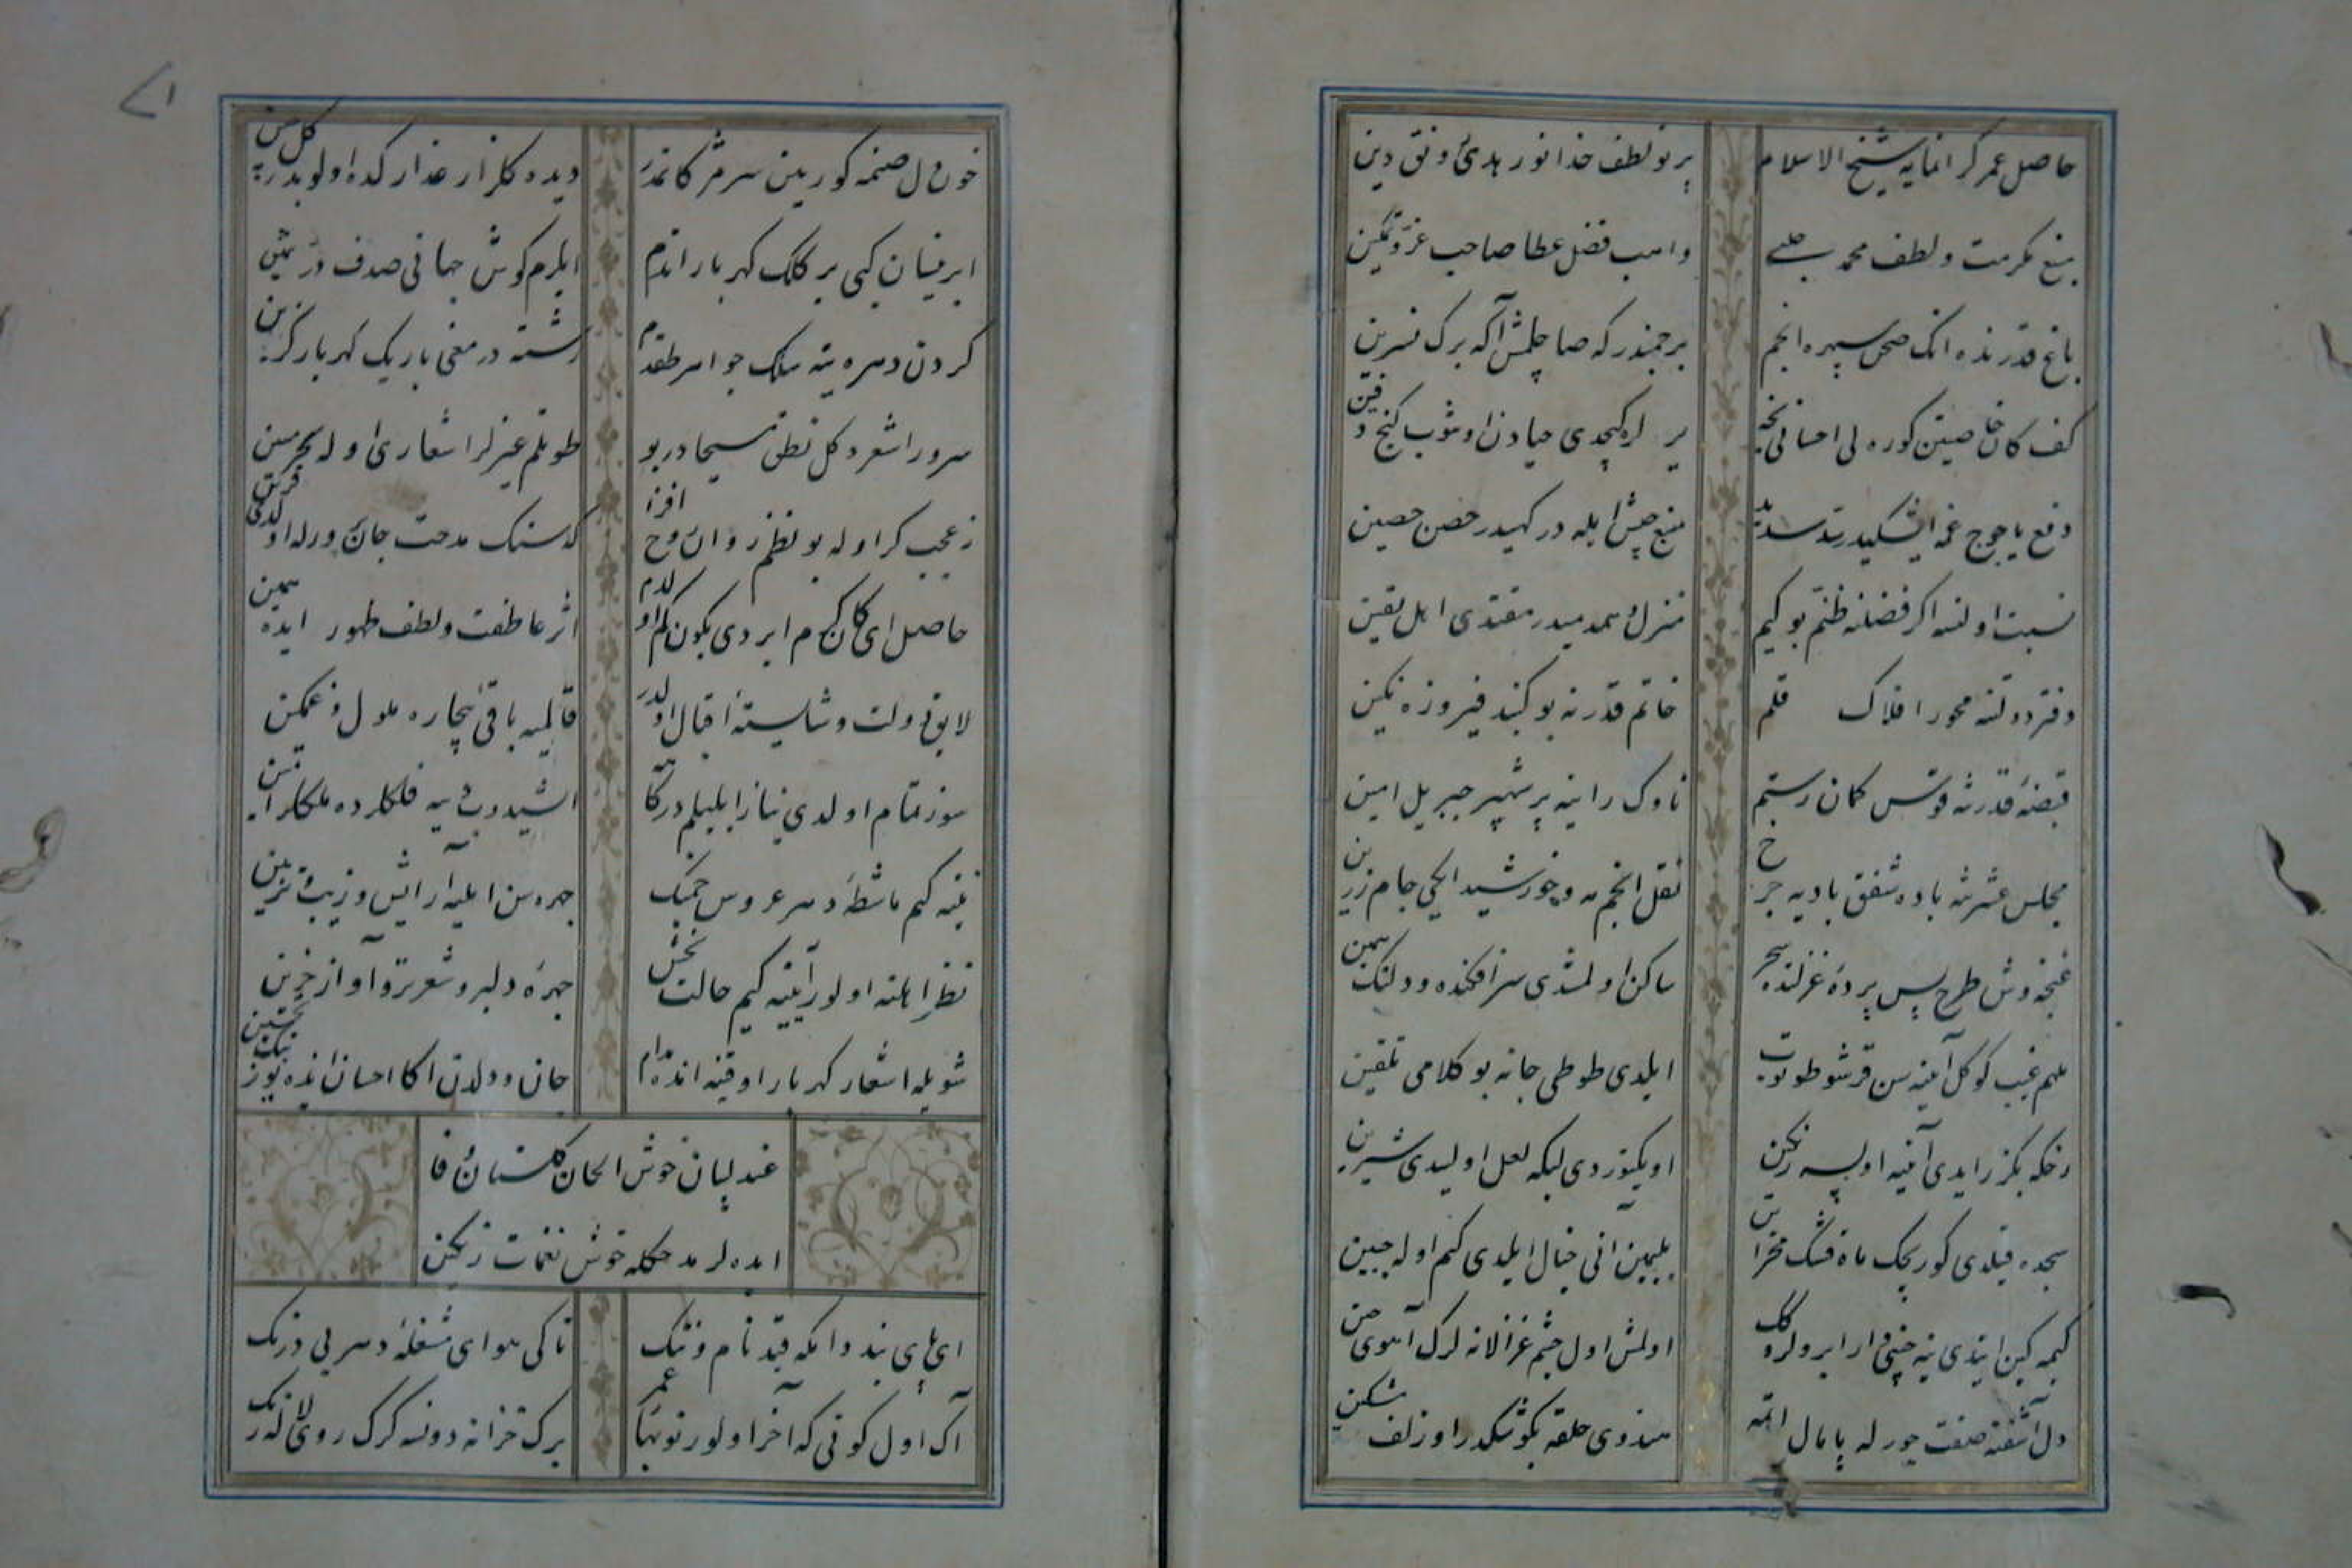 حاصل عمر کرانمایه شیخ الاسلام
پرتو لطف خدا نور هدی رونق دین
منبع مکرمت و لطف محمد چلبی
واهب فضل عطا صاحب عز و تمکین
باغ قدرنده انک صحن سپهره انجم
بر چمندر که صاچلمش اکه برک نسرین
کف کان خاصیتن کوره لی احسانی
یره کچدی حیادن اوتوب کنج دفین
دفع یاجوج غمه اشیکیدر سد سدید
منع جیش ایله درکهیدر حصن حصین
نسبت اولنسه اکر فضلنه ظنم بو کیم
منزل همدمیدر مقتدی اهل یقین
دفتر دولتنه محور افلاک قلم
خاتم قدرنه بو کنبد فیروزه نکین
قبضهٔ قدرتنه قوس کمان رستم
ناوک راینه پر شهپر جبریل امین
مجلس عشرتنه باده شفق بادیه چرخ
نقل انجم مه و خورشید ایکی جام زرین
غنچه وش طرح پس پردهٔ غزلنده سحر
ساکن اولمشدی سرافکنده و دلتنک همین
ملهم غیب کوکل آینه سن قرشو طوتوب
ایلدی طوطی جانه بو کلامی تلقین
رخکه بکزر ایدی آینه اولسه رنکین
اویکنوردی لبکه لعل اولیدی شیرین
سجده قیلدی کوریجک ماه قشک محرابن
بیلیمین انی خیال ایلدی کیم اوله جبین
کیمه کین ایتدی ینه چینی وار ابرولروک
اولمش اول چشم غزالانه لرک آهوی چین
دل آشفته صفت جورله پامال اتمه
هندوی حلقه بکوشکدر او زلف مشکین
خون دل صنمه کورینن سر مژکانمدر
دیده کلزار عذارکده اولوبدر کلچین
ابر نیسان کبی بر کلک کهربار اندم
ایلرم کوش جهانی صدف در ثمین
کردن دهره ینه سلک جواهر طقدم
رشته در معنی باریک کهربار کزین
سرورا شعر دکل نطق مسیحادر بو
طوتلم غیرلر اشعاری اوله سحر مبین
نه عجب کر اوله بو نظم روان روح افزا
که سنک مدحت جان ورله اولدی قرین
حاصل ای کان کرم ابر دی بکون کلم اولدم
اثر عاطفت و لطف ظهور ایده همین
لایق دولت و شایستهٔ اقبال اولدر
قالمیه باقی بیچاره ملول و غمکین
سوز تمام اولدی نیاز ایلیلم درکاهه
اشیدوب یه فلکلرده ملکلر آمین
نیته کیم ماشطهٔ دهر عروس چمنک
چهره سن ایلیه آرایش و زیب و تزیین
نظر اهلنه اولور آینه کیم حالت بخش
چهرهٔ دلبر و شعر تر و آواز حزین
شویله اشعار کهربار اوقینه انده مدام
جان و دلدن اکا احسان ایده یوز بیک تحسین
عندلیبان خوش الحان کلستان وفا
ایده لر مدحکله خوش نغمات رنکین
ای پای بند دامکه قید نام و ننک
تا کی هوای مشغلهٔ دهر بی درنک
آک اول کونی که آخر اولور نوبهار عمر
برک خزانه دونسه کرک روی لاله رنک